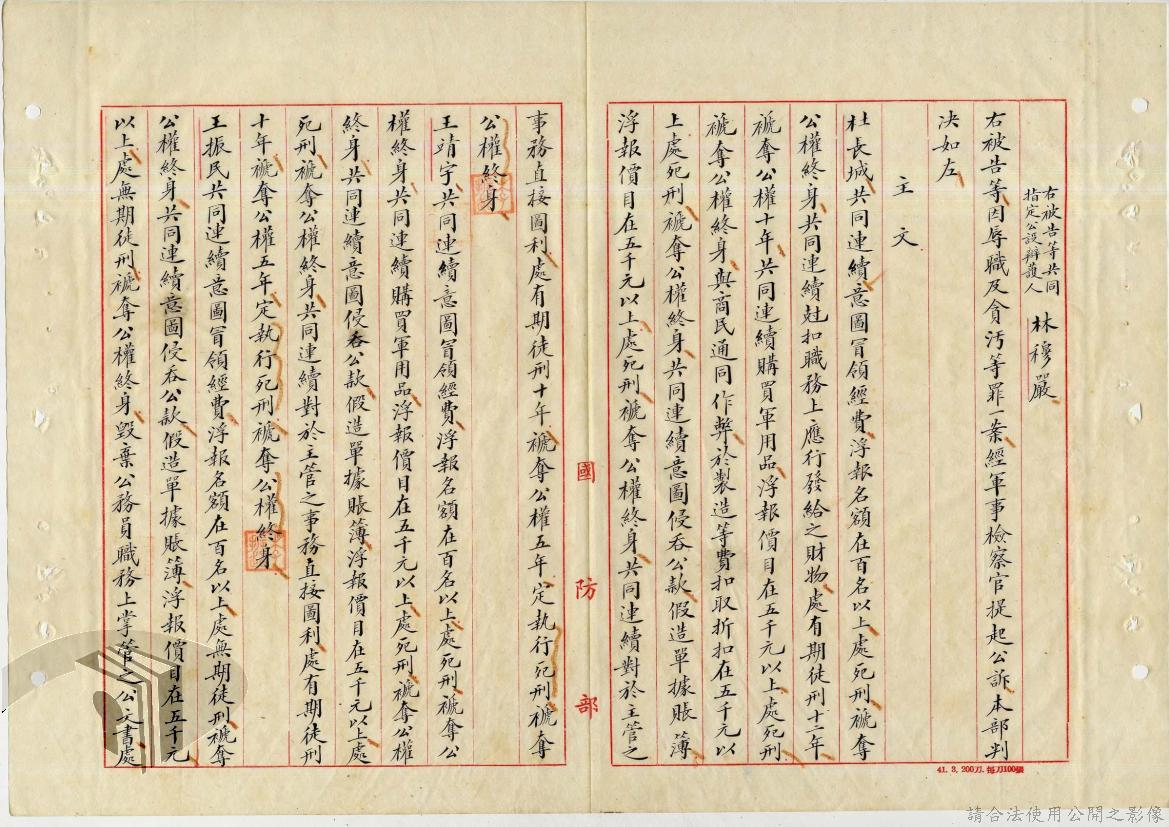 右被告等共同
指定公設辯護人 林穆嚴
右被告等因辱職及貪污等罪一案經軍事檢察官提起公訴本部判
決如左
主文
杜長城共同連續意圖冒領經費浮報名額在百名以上處死刑褫奪
公權終身共同連續尅扣職務上應行發給之財物處有期徒刑十二年
褫奪公權十年共同連續購買軍用品浮報價目在五千元以上處死刑
褫奪公權終身與商民通同作弊於製造等費扣取折扣在五千元以
上處死刑褫奪公權終身共同連續意圖侵吞公款假造單據賬簿
浮報價目在五千元以上處死刑褫奪公權終身共同連續對於主管之
事務直接圖利處有期徒刑十年褫奪公權五年定執行死刑褫奪
公權終身
王靖宇共同連續意圖冒領經費浮報名額在百名以上處死刑褫奪公
權終身共同連續購買軍用品浮報價目在五千元以上處死刑褫奪公權
終身共同連續意圖侵吞公款假造單據賬簿浮報價目在五千元以上處
死刑褫奪公權終身共同連續對於主管之事務直接圖利處有期徒刑
十年褫奪公權五年定執行死刑褫奪公權終身
王振民共同連續意圖冒領經費浮報名額在百名以上處無期徒刑褫奪
公權終身共同連續意圖侵吞公款假造單據賬簿浮報價目在五千元
以上處無期徒刑褫奪公權終身毀棄公務員職務上掌管之公文書處
國防部
41. 3. 200刀. 每刀100張
請合法使用公開之影像